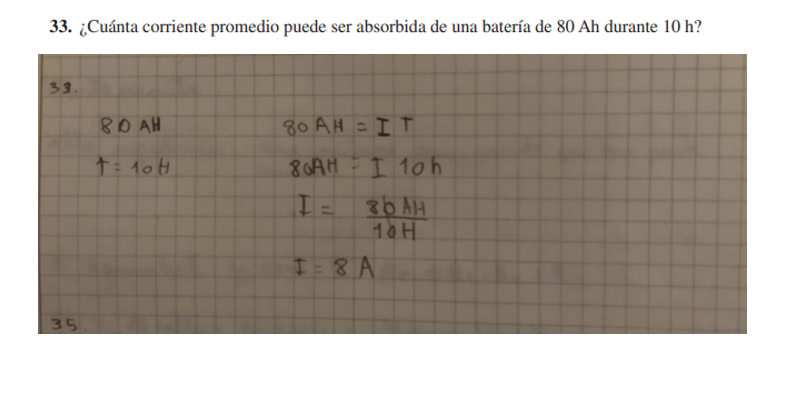 33. ¿Cuánta corriente promedio puede ser absorbida de una batería de 80 Ah durante 10 h?
33.
80 AH
80 AH = I T
t = 10H
80AH = I 10h
I = 80 AH
10H
I = 8 A
35.